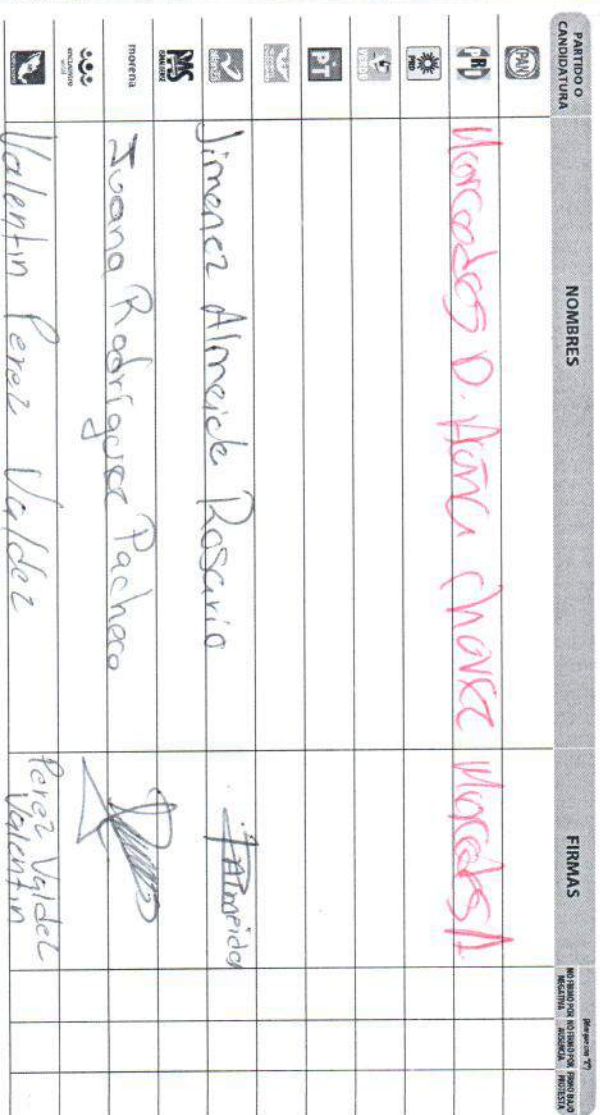 PARTIDO O CANDIDATURA
NOMBRES
FIRMAS
(Marque con "X")
NO FIRMÓ POR NEGATIVA
NO FIRMÓ POR AUSENCIA
FIRMÓ BAJO PROTESTA
PAN
PRI
Mercedes D. Chavez Mercedes A
PRD
VERDE
PT
Jimenez Almeida Rosario Almeida
PAS
SINALOENSE
morena
Juana Rodríguez Pacheco
encuentro
social
Valentin Perez Valdez Perez Valdez
Valentin